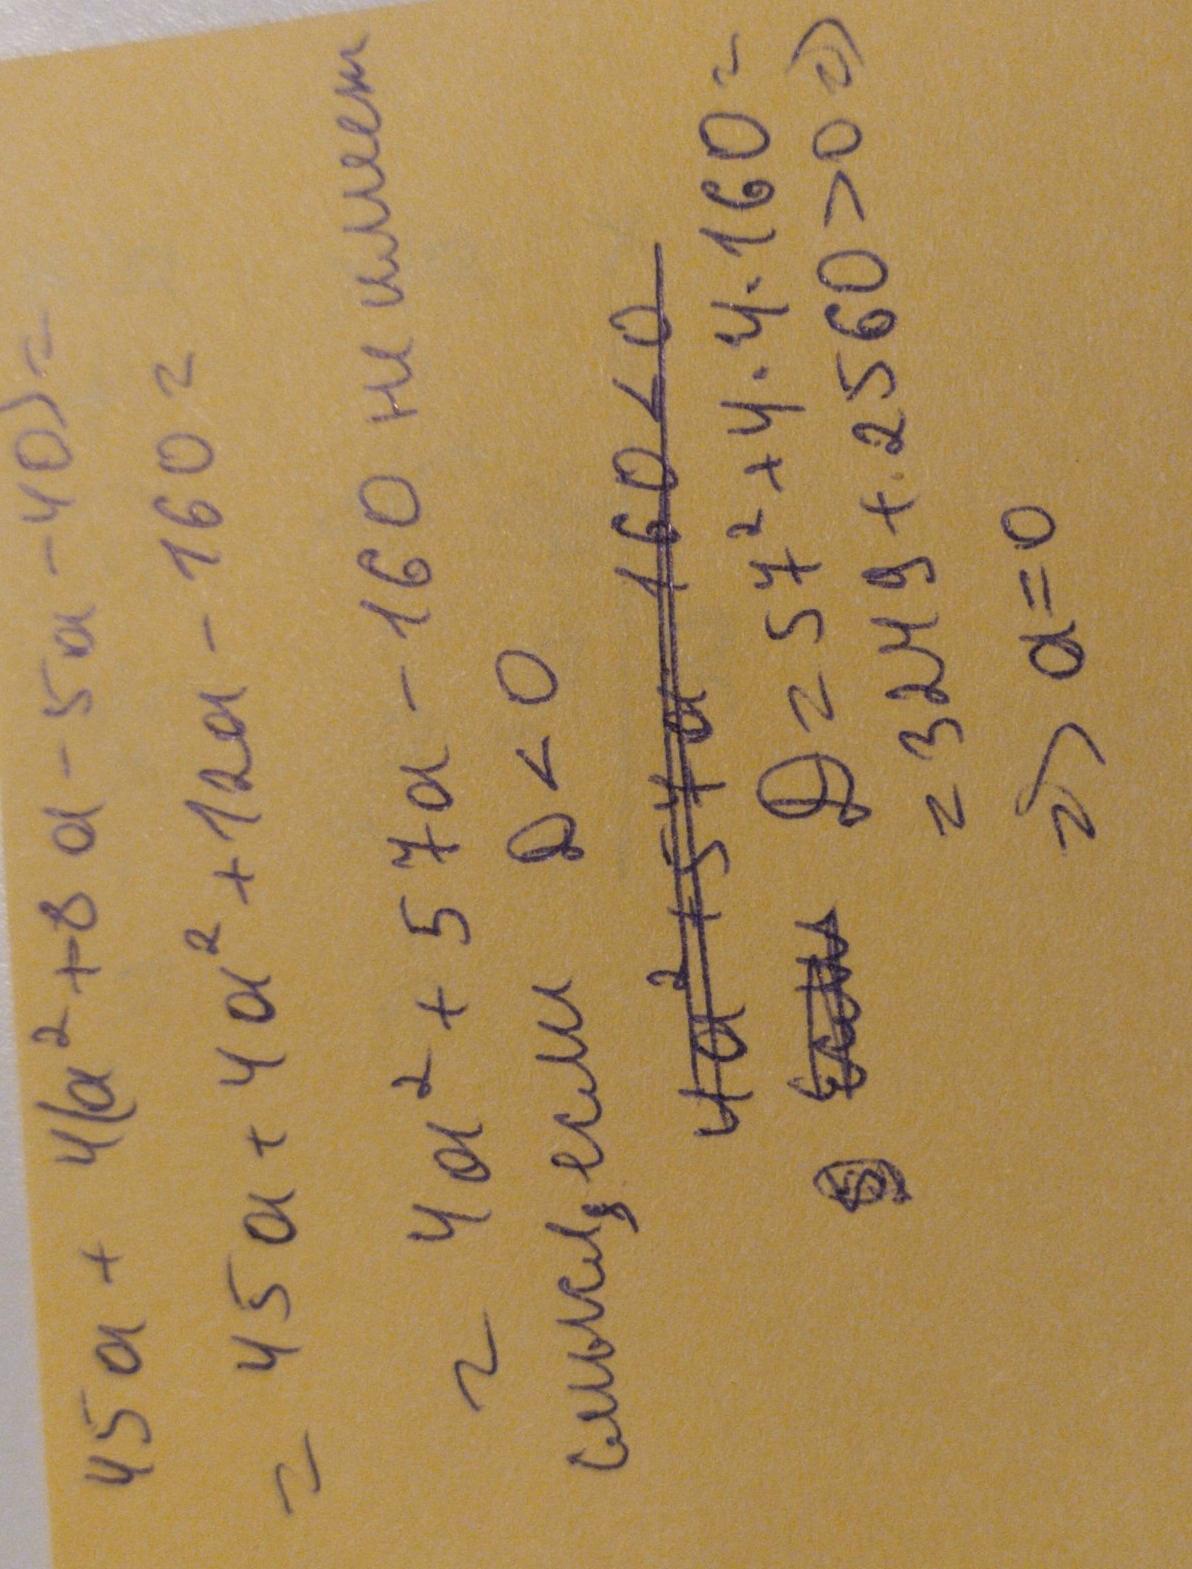 45a + 4(a²+8a-5a-40)=
= 45a+4a²+12a-160=
= 4a²+57a-160 не имеет
смысл, если D<0
4a²+57a 160<0
D=57²+4·4·160=
=3249+2560>0 =>
=> a=0